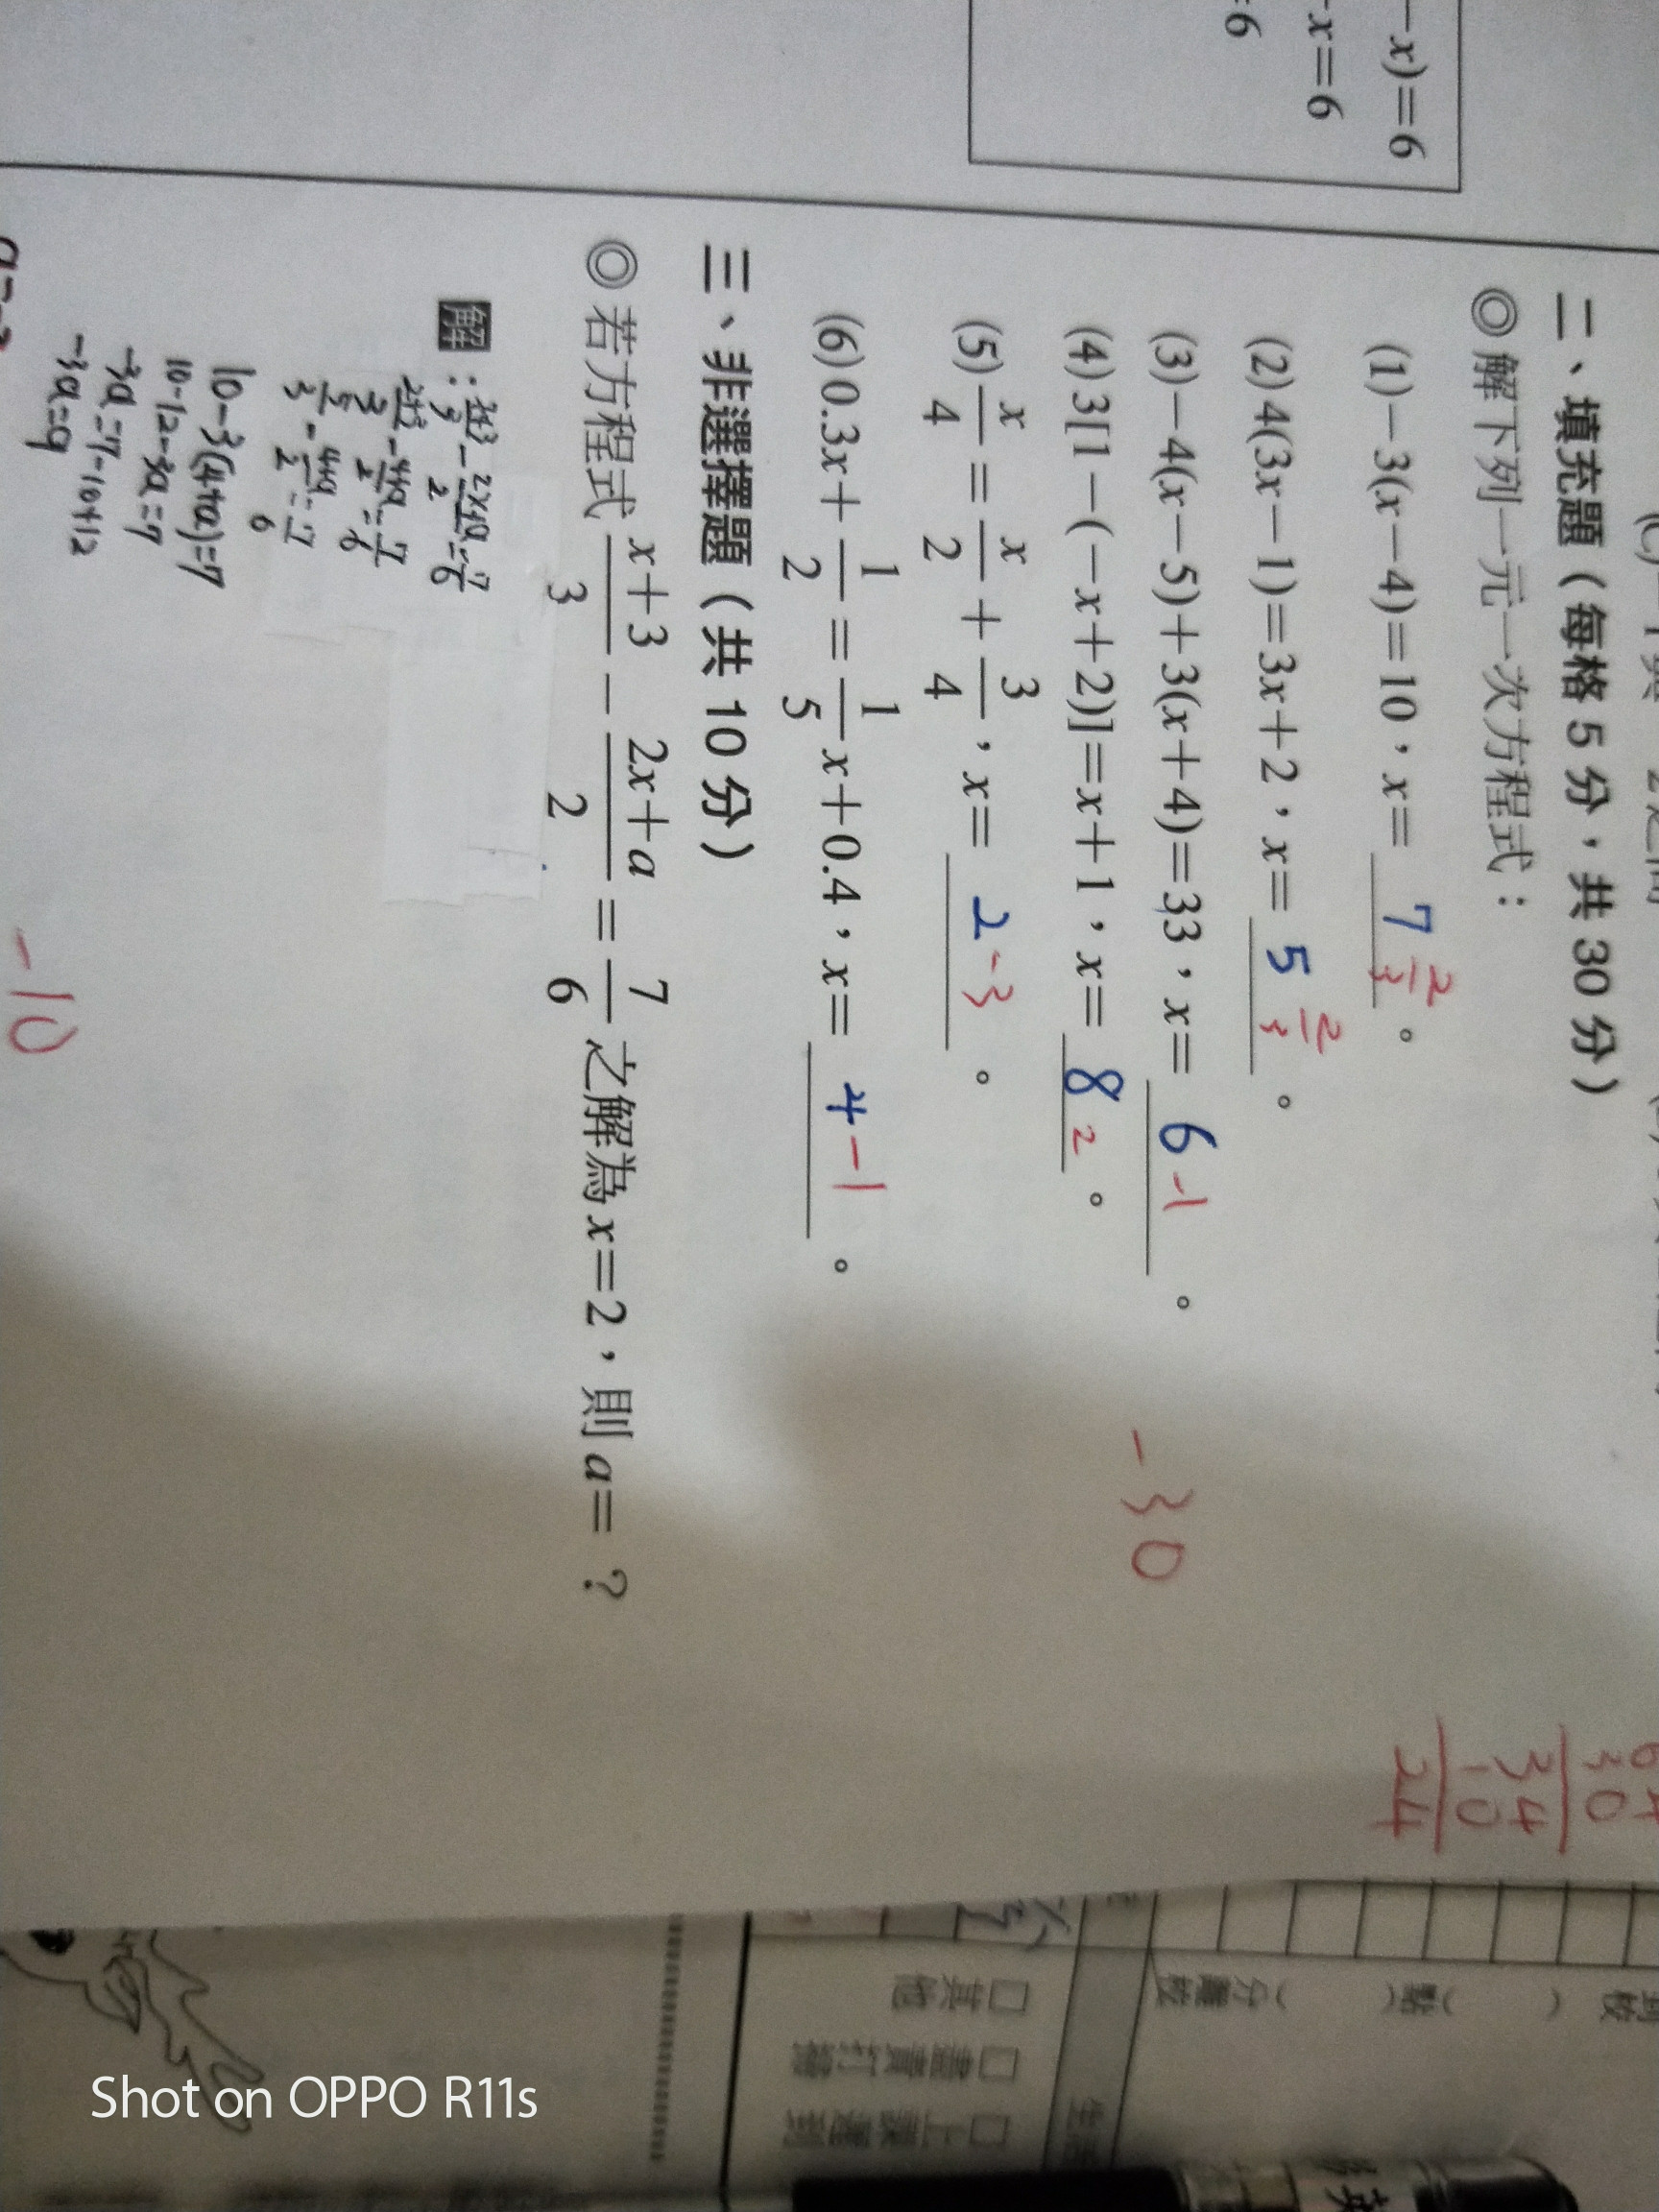 -x)=6
-x=6
=6
二、填充題（每格 5 分，共 30 分）
◎解下列一元一次方程式：
(1)-3(x-4)=10，x= 7 2/3 。
(2)4(3x-1)=3x+2，x= 5 2/3 。
(3)-4(x-5)+3(x+4)=33，x= 6 -1 。
(4)3[1-(-x+2)]=x+1，x= 8 2 。
(5) x/4 = x/2 + 3/4，x= 2 -3 。
(6)0.3x+ 1/2 = 1/5 x+0.4，x= 4 -1 。
-30
34
10
24
三、非選擇題（共 10 分）
◎若方程式 (x+3)/3 - (2x+a)/2 = 7/6 之解為 x=2，則 a= ？
解：(2+3)/3 - (2×2+a)/2 = 7/6
(2+3)/3 - (4+a)/2 = 7/6
5/3 - (4+a)/2 = 7/6
10-3(4+a)=7
10-12-3a=7
-3a=7-10+12
-3a=9
a=-3
-10
□其他
□上課遲到
Shot on OPPO R11s